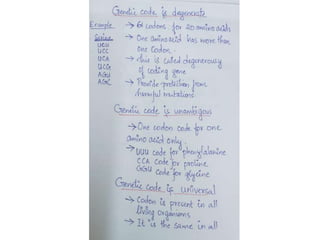 Genetic code is degenerate
Example → 61 codons for 20 amino acids
Serine → One amino acid has more than
UCU one codon.
UCC
UCA → This is called degeneracy
UCG of coding gene
AGU → Provide protection from
AGC harmful mutations
Genetic code is unambigous
→ One codon code for one
amino acid only.
→ UUU code for phenylalanine
CCA code for proline
GGU code for glycine
Genetic code is universal
→ Codon is present in all
living organisms
→ It is the same in all